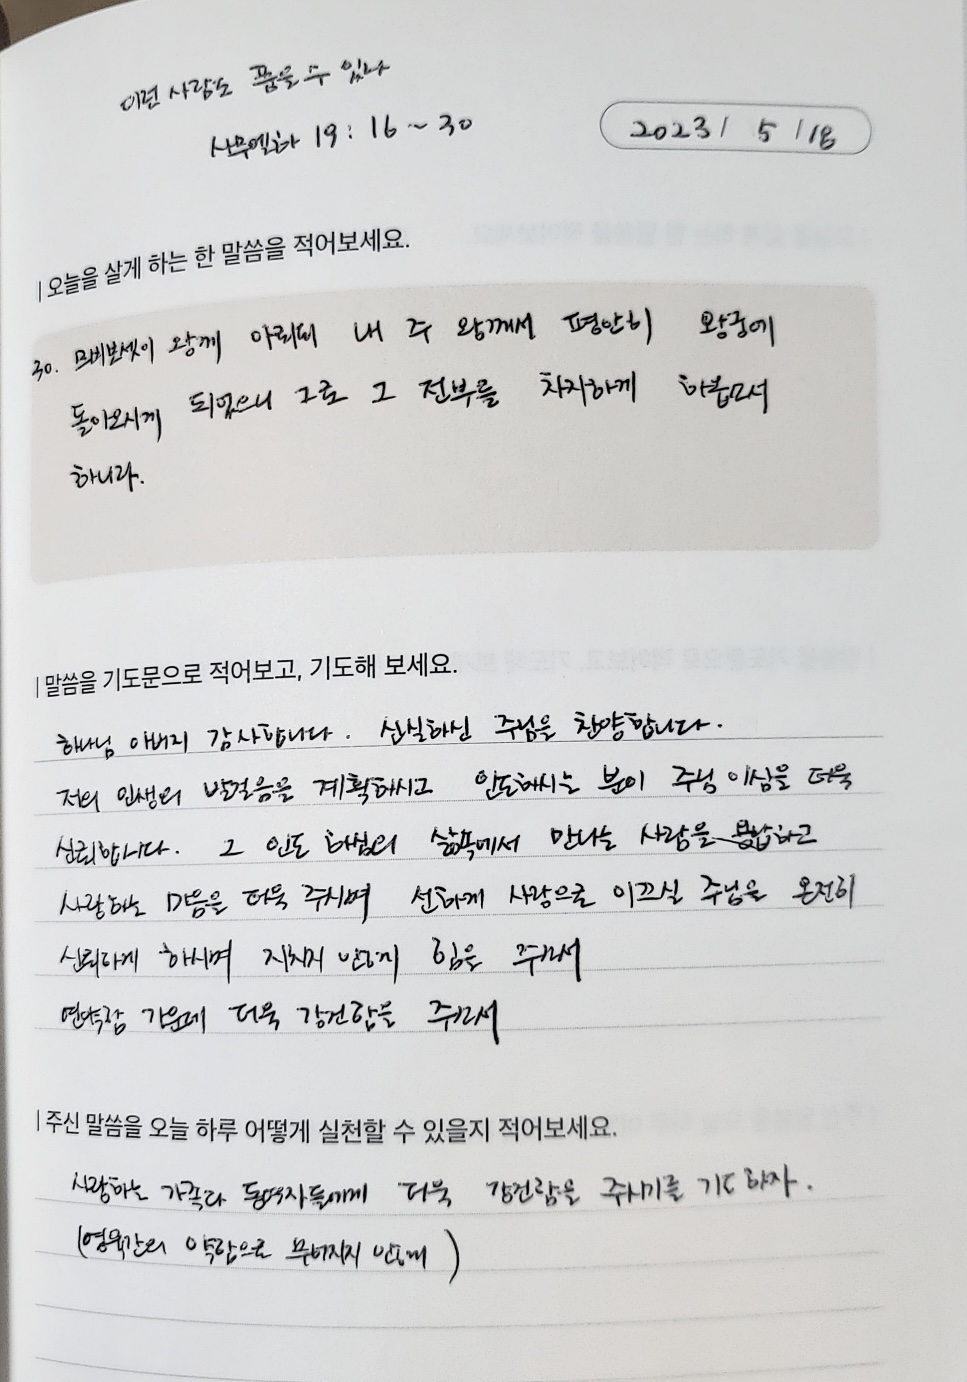 이런 사람도 품을 수 있나
사무엘하 19 : 16 ~ 30
2023 / 5 / 18
오늘을 살게 하는 한 말씀을 적어보세요.
30. 므비보셋이 왕께 아뢰되 내 주 왕께서 평안히 왕궁에
돌아오시게 되었으니 그로 그 전부를 차지하게 하옵소서
하니라.
말씀을 기도문으로 적어보고, 기도해 보세요.
하나님 아버지 감사합니다. 신실하신 주님을 찬양합니다.
저의 인생의 발걸음을 계획하시고 인도하시는 분이 주님 이심을 더욱
신뢰합니다. 그 인도 하심의 삶속에서 만나는 사람을 용납하고
사랑하는 마음을 더욱 주시며 선하게 사랑으로 이끄실 주님을 온전히
신뢰하게 하시며 지치지 않게 힘을 주소서
연약함 가운데 더욱 강건함을 주소서
주신 말씀을 오늘 하루 어떻게 실천할 수 있을지 적어보세요.
사랑하는 가족과 동역자들에게 더욱 강건함을 주시기를 기도하자.
(영육간의 약함으로 무너지지 않게)